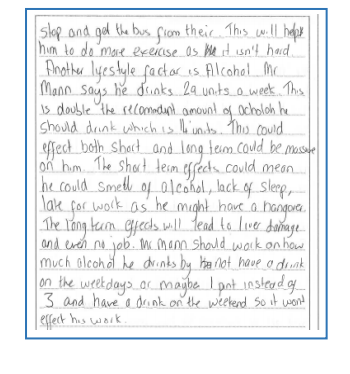 stop and get the bus from their. This will help
him to do more exercise as it isn't hard
Another lyestyle factor is Alcohol Mr
Mann says he drinks 29 units a week. This
is double the recomandant amount of acholoh he
should drink which is 14 units. This could
effect both short and long term could be massave
on him. The short term effects could mean
he could smell of alcohol, lack of sleep,
late for work as he might have a hangover.
The long term effects will lead to liver damage
and even no job. Mr Mann should work on how
much alcohol he drinks by not have a drink
on the weekdays or maybe 1 pnt instead of
3 and have a drink on the weekend so it wont
effect his work.